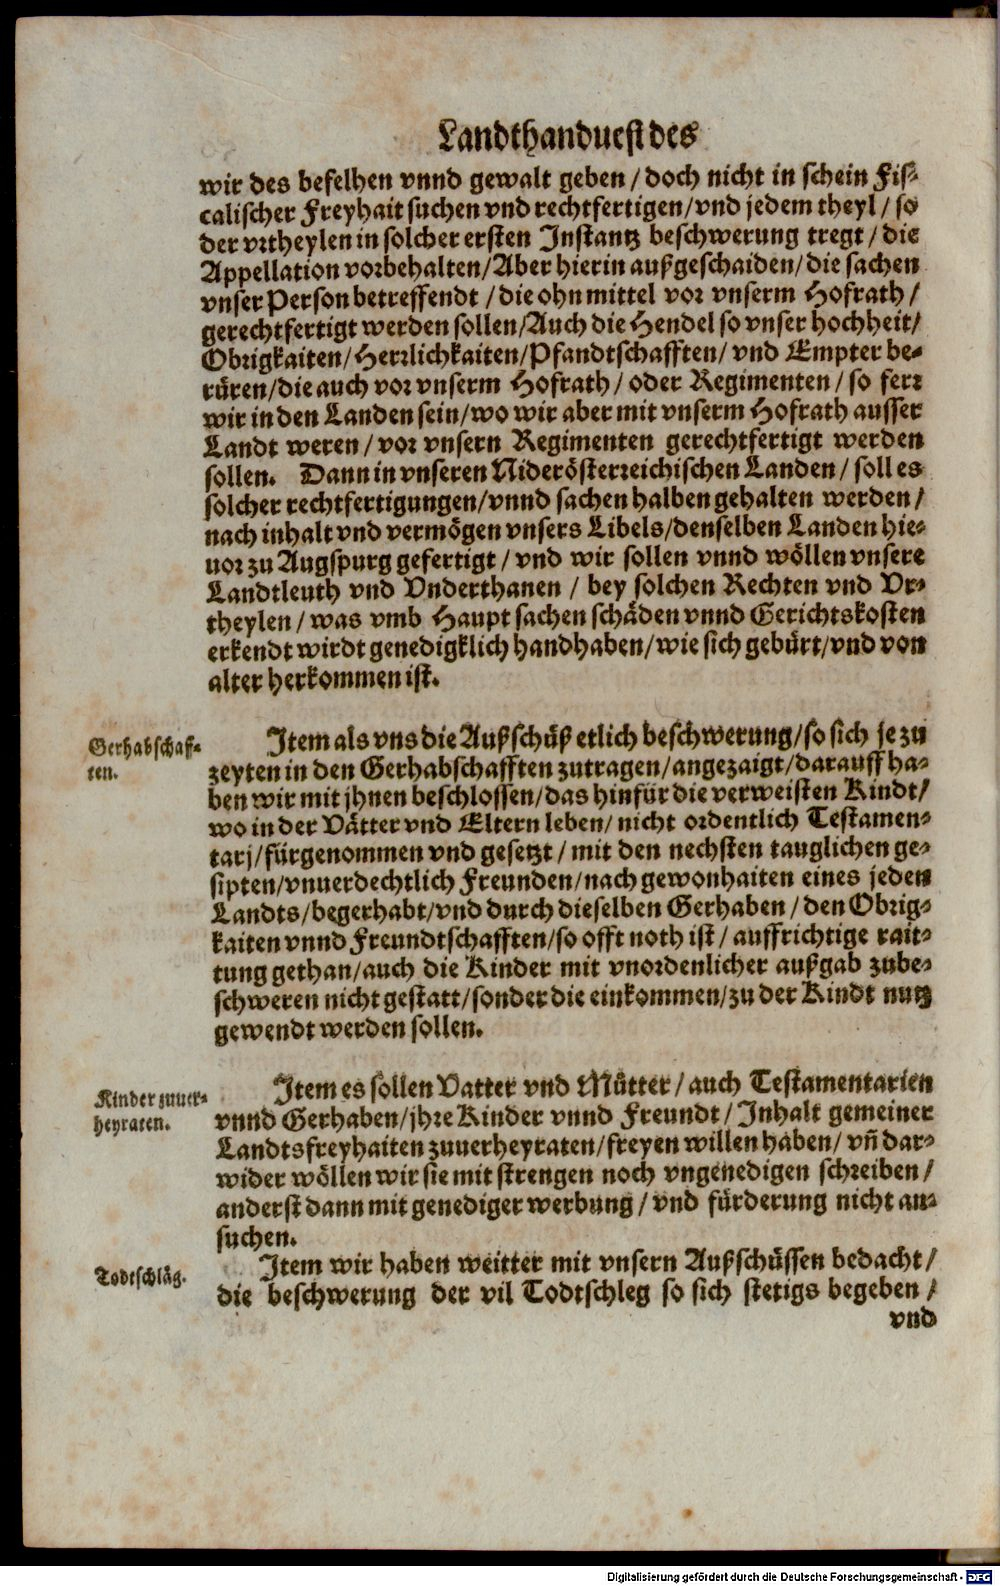 Landthanduest des
wir des befelhen vnnd gewalt geben / doch nicht in schein Fis-
calischer Freyhait suchen vnd rechtfertigen/vnd jedem theyl / so
der vrtheylen in solcher ersten Instantz beschwerung tregt / die
Appellation vorbehalten/Aber hierin außgeschaiden/die sachen
vnser Person betreffendt / die ohn mittel vor vnserm Hofrath /
gerechtfertigt werden sollen/Auch die Hendel so vnser hochheit/
Obrigkaiten/Herrlichkaiten/Pfandtschafften/ vnd Empter be-
rüren/die auch vor vnserm Hofrath / oder Regimenten / so ferr
wir in den Landen sein/wo wir aber mit vnserm Hofrath ausser
Landt weren / vor vnsern Regimenten gerechtfertigt werden
sollen. Dann in vnseren Niderösterreichischen Landen / soll es
solcher rechtfertigungen/vnnd sachen halben gehalten werden /
nach inhalt vnd vermögen vnsers Libels/denselben Landen hie-
uor zu Augspurg gefertigt / vnd wir sollen vnnd wöllen vnsere
Landtleuth vnd Vnderthanen / bey solchen Rechten vnd Vr-
theylen / was vmb Haupt sachen schäden vnnd Gerichtskosten
erkendt wirdt genedigklich handhaben/wie sich gebürt/vnd von
alter herkommen ist.
Gerhabschaf-
ten.
Item als vns die Außschüß etlich beschwerung/so sich je zu
zeyten in den Gerhabschafften zutragen/angezaigt/darauff ha-
ben wir mit jhnen beschlossen/das hinfür die verweisten Kindt/
wo in der Vätter vnd Eltern leben/ nicht ordentlich Testamen-
tarj/fürgenommen vnd gesetzt / mit den nechsten tauglichen ge-
sipten/vnuerdechtlich Freunden/nach gewonhaiten eines jeden
Landts/begerhabt/vnd durch dieselben Gerhaben / den Obrig-
kaiten vnnd Freundtschafften/so offt noth ist / auffrichtige rait-
tung gethan/auch die Kinder mit vnordenlicher außgab zube-
schweren nicht gestatt/sonder die einkommen/zu der Kindt nutz
gewendt werden sollen.
Kinder zuuer-
heyraten.
Item es sollen Vatter vnd Mütter / auch Testamentarien
vnnd Gerhaben/jhre Kinder vnnd Freundt / Inhalt gemeiner
Landtsfreyhaiten zuuerheyraten/freyen willen haben/ vñ dar-
wider wöllen wir sie mit strengen noch vngenedigen schreiben /
anderst dann mit genediger werbung / vnd fürderung nicht an-
suchen.
Todtschläg.
Item wir haben weitter mit vnsern Außschüssen bedacht /
die beschwerung der vil Todtschleg so sich stetigs begeben /
vnd
Digitalisierung gefördert durch die Deutsche Forschungsgemeinschaft - DFG